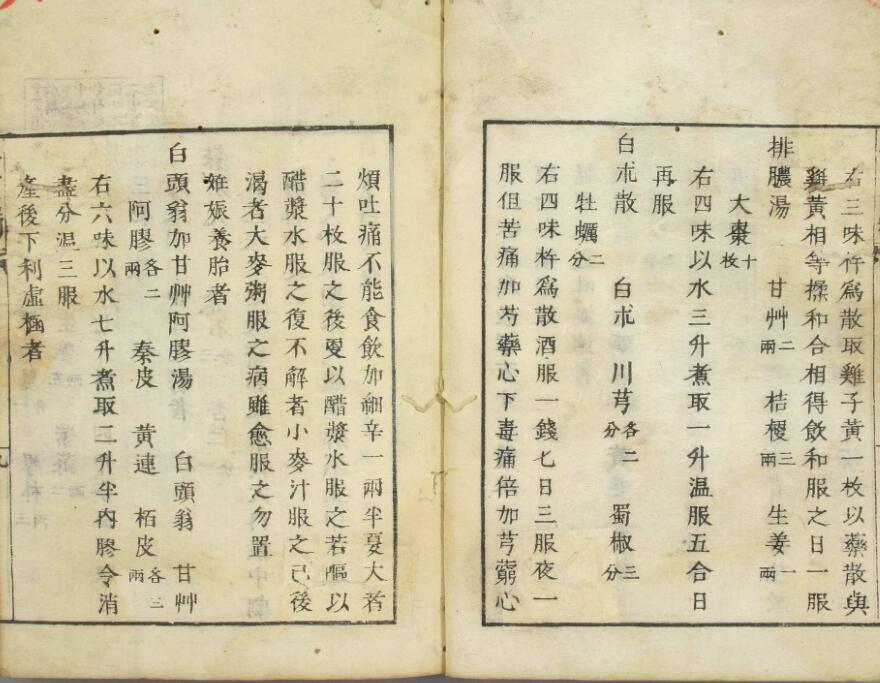 右三味杵為散取雞子黃一枚以藥散與
雞黃相等揉和合相得飲和服之日一服
排膿湯 甘艸二兩 桔梗三兩 生姜一兩
大棗十枚
右四味以水三升煮取一升温服五合日
再服
白朮散 白朮 川芎各二分 蜀椒三分
牡蠣二分
右四味杵為散酒服一錢七日三服夜一
服但苦痛加芍藥心下毒痛倍加芎藭心
煩吐痛不能食飲加細辛一兩半夏大者
二十枚服之後更以醋漿水服之若嘔以
醋漿水服之復不解者小麥汁服之已後
渴者大麥粥服之病雖愈服之勿置
妊娠養胎者
白頭翁加甘艸阿膠湯 白頭翁 甘艸
阿膠各二兩 秦皮 黃連 栢皮各三兩
右六味以水七升煮取二升半內膠令消
盡分温三服
產後下利虛極者